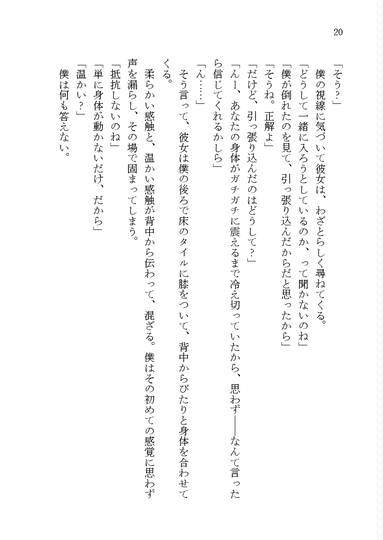 20
「そう?」
僕の視線に気づいて彼女は、わざとらしく尋ねてくる。
「どうして一緒に入ろうとしているのか、って聞かないのね」
「僕が倒れたのを見て、引っ張り込んだからだと思ったから」
「そうね。正解よ」
「だけど、引っ張り込んだのはどうして?」
「んー、あなたの身体がガチガチに震えるまで冷え切っていたから、思わず――なんて言った
ら信じてくれるかしら」
「ん……」
そう言って、彼女は僕の後ろで床のタイルに膝をついて、背中からぴたりと身体を合わせて
くる。
柔らかい感触と、温かい感触が背中から伝わって、混ざる。僕はその初めての感覚に思わず
声を漏らし、その場で固まってしまう。
「抵抗しないのね」
「単に身体が動かないだけ、だから」
「温かい?」
僕は何も答えない。